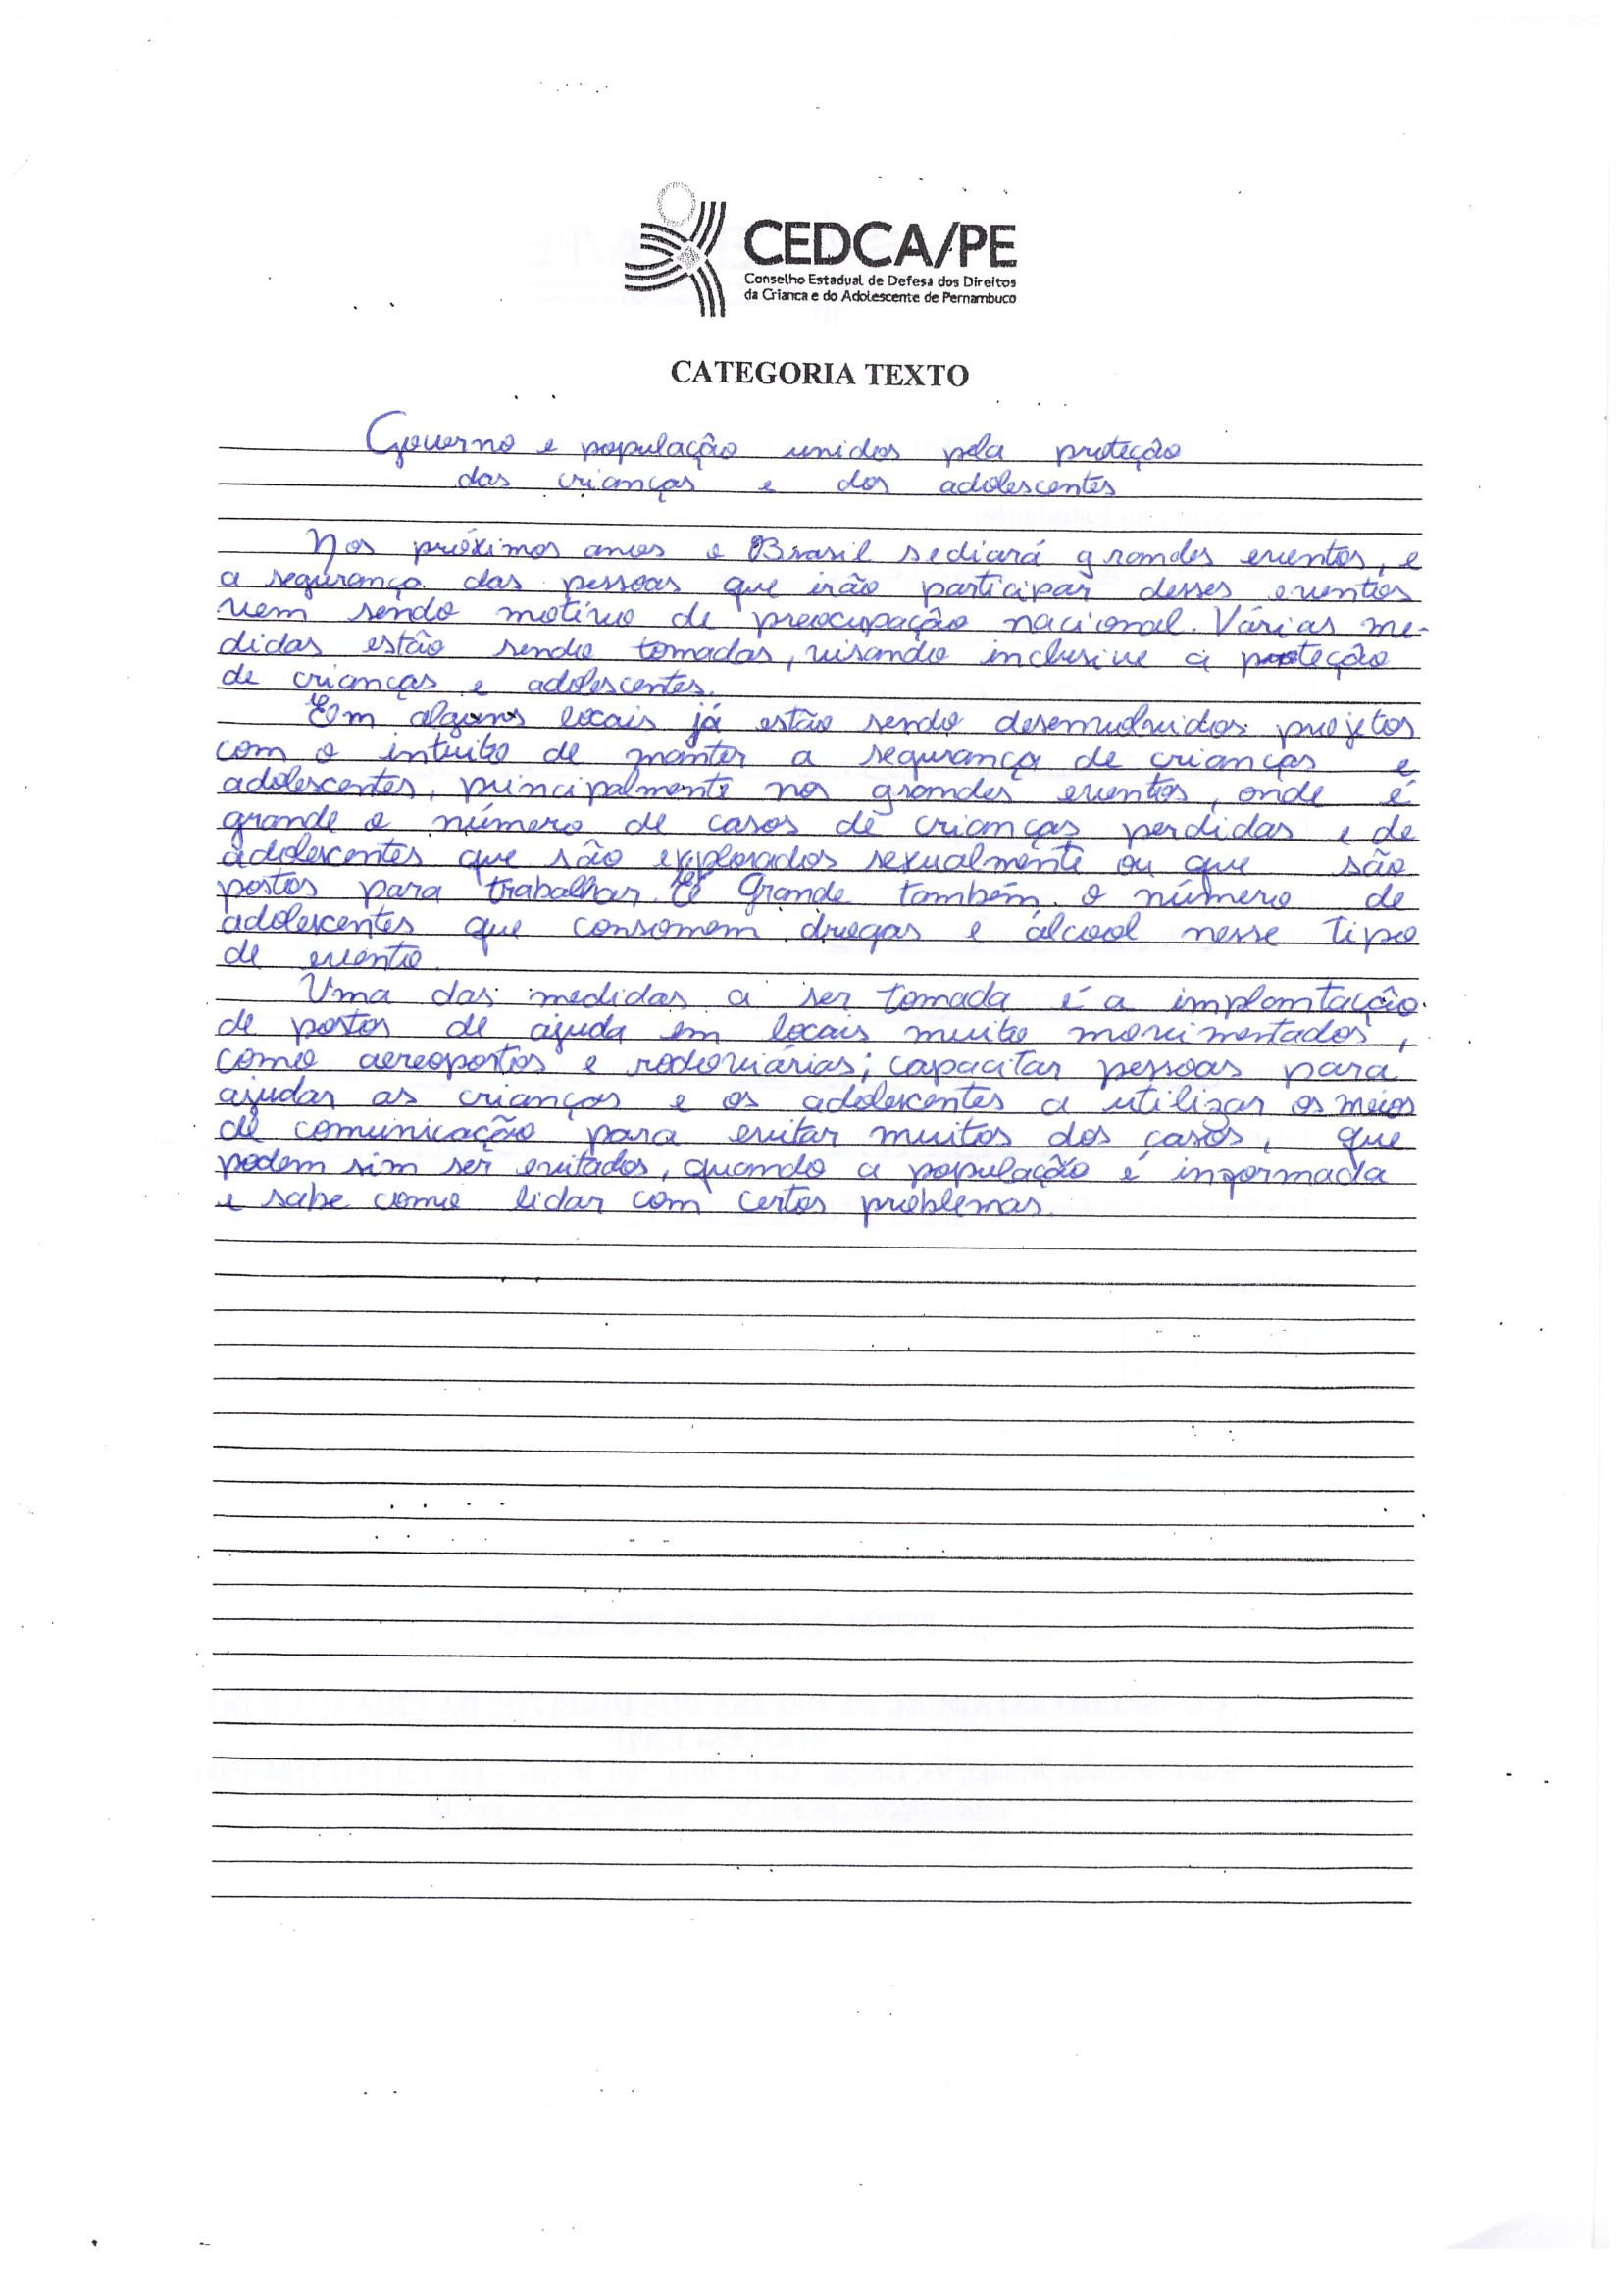 CEDCA/PE
Conselho Estadual de Defesa dos Direitos
da Crianca e do Adolescente de Pernambuco
CATEGORIA TEXTO
Governo e população unidos pela proteção
das crianças e dos adolescentes
Nos próximos anos o Brasil sediará grandes eventos, e
a segurança das pessoas que irão participar desses eventos
vem sendo motivo de preocupação nacional. Várias me-
didas estão sendo tomadas, visando inclusive a proteção
de crianças e adolescentes.
Em alguns locais já estão sendo desenvolvidos projetos
com o intuito de manter a segurança de crianças e
adolescentes, principalmente nos grandes eventos, onde é
grande o número de casos de crianças perdidas e de
adolescentes que são explorados sexualmente ou que são
postos para trabalhar. É Grande também, o número de
adolescentes que consomem drogas e álcool nesse tipo
de evento.
Uma das medidas a ser tomada é a implantação
de postos de ajuda em locais muito movimentados,
como aereoportos e rodoviárias; capacitar pessoas para
ajudar as crianças e os adolescentes a utilizar os meios
de comunicação para evitar muitos dos casos, que
podem sim ser evitados, quando a população é informada
e sabe como lidar com certos problemas.